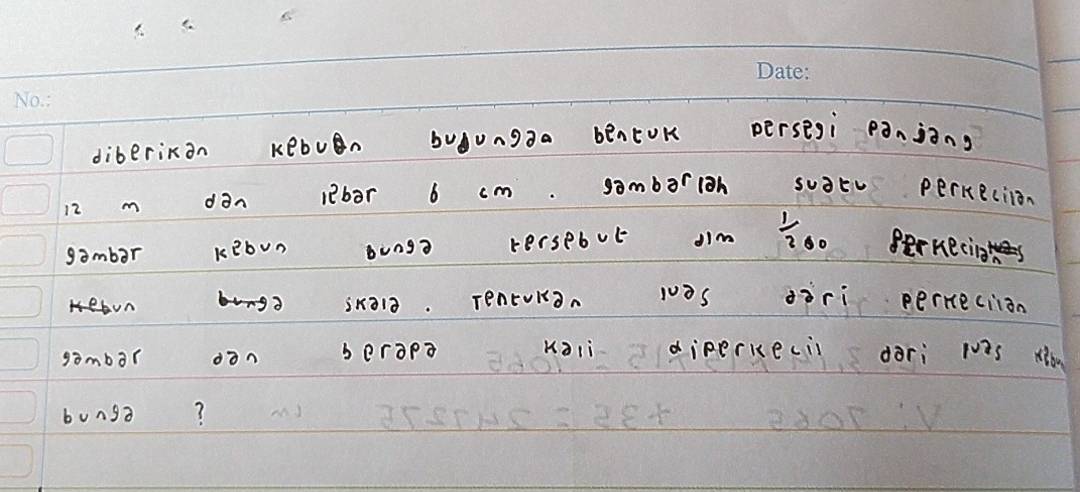 No.:
Date:
diberikan kebun bubungaa bentuk persegi panjang
12 m dan lebar 6 cm. gambarlah suatu perkecilan
gambar kebun bunga tersebut dlm 1/200 Perkecilan
kebun bunga skala. Tentukan luas dari perkecilan
gambar dan berapa kali diperkecil dari luas kebun
bunga?